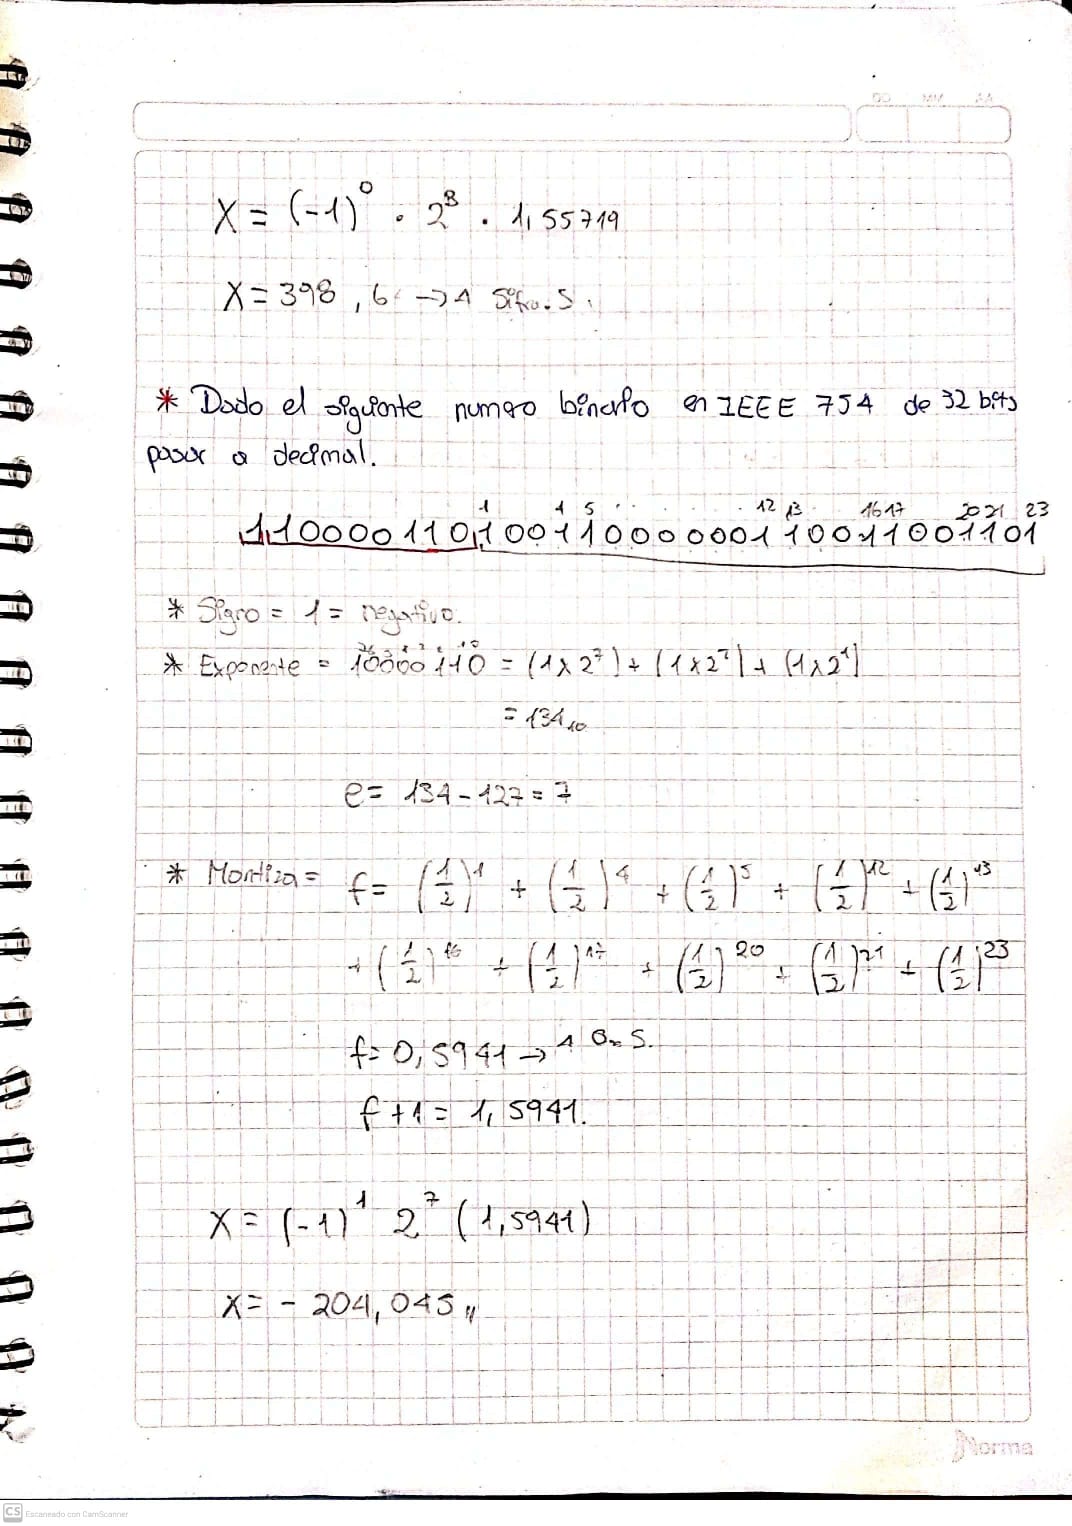 DD MM AA
X = (-1)^0 . 2^8 . 1,55719
X = 398,6 → 4 Sifra.S.
* Dado el siguiente numero binario en IEEE 754 de 32 bits
pasar a decimal.
1 4 5 . . . . . . 12 13 16 17 20 21 23
11000011010011000000011001100110 1
* Signo = 1 = negativo.
* Exponente = 10000110 = (1x2^7) + (1x2^2) + (1x2^1)
= 134₁₀
e = 134 - 127 = 7
* Mantiza = f = (1/2)^1 + (1/2)^4 + (1/2)^5 + (1/2)^12 + (1/2)^13
+ (1/2)^16 + (1/2)^17 + (1/2)^20 + (1/2)^21 + (1/2)^23
f = 0,5941 → 4
f + 1 = 1,5941.
X = (-1)^1 2^7 (1,5941)
X = - 204,045 //
Norma
CS Escaneado con CamScanner